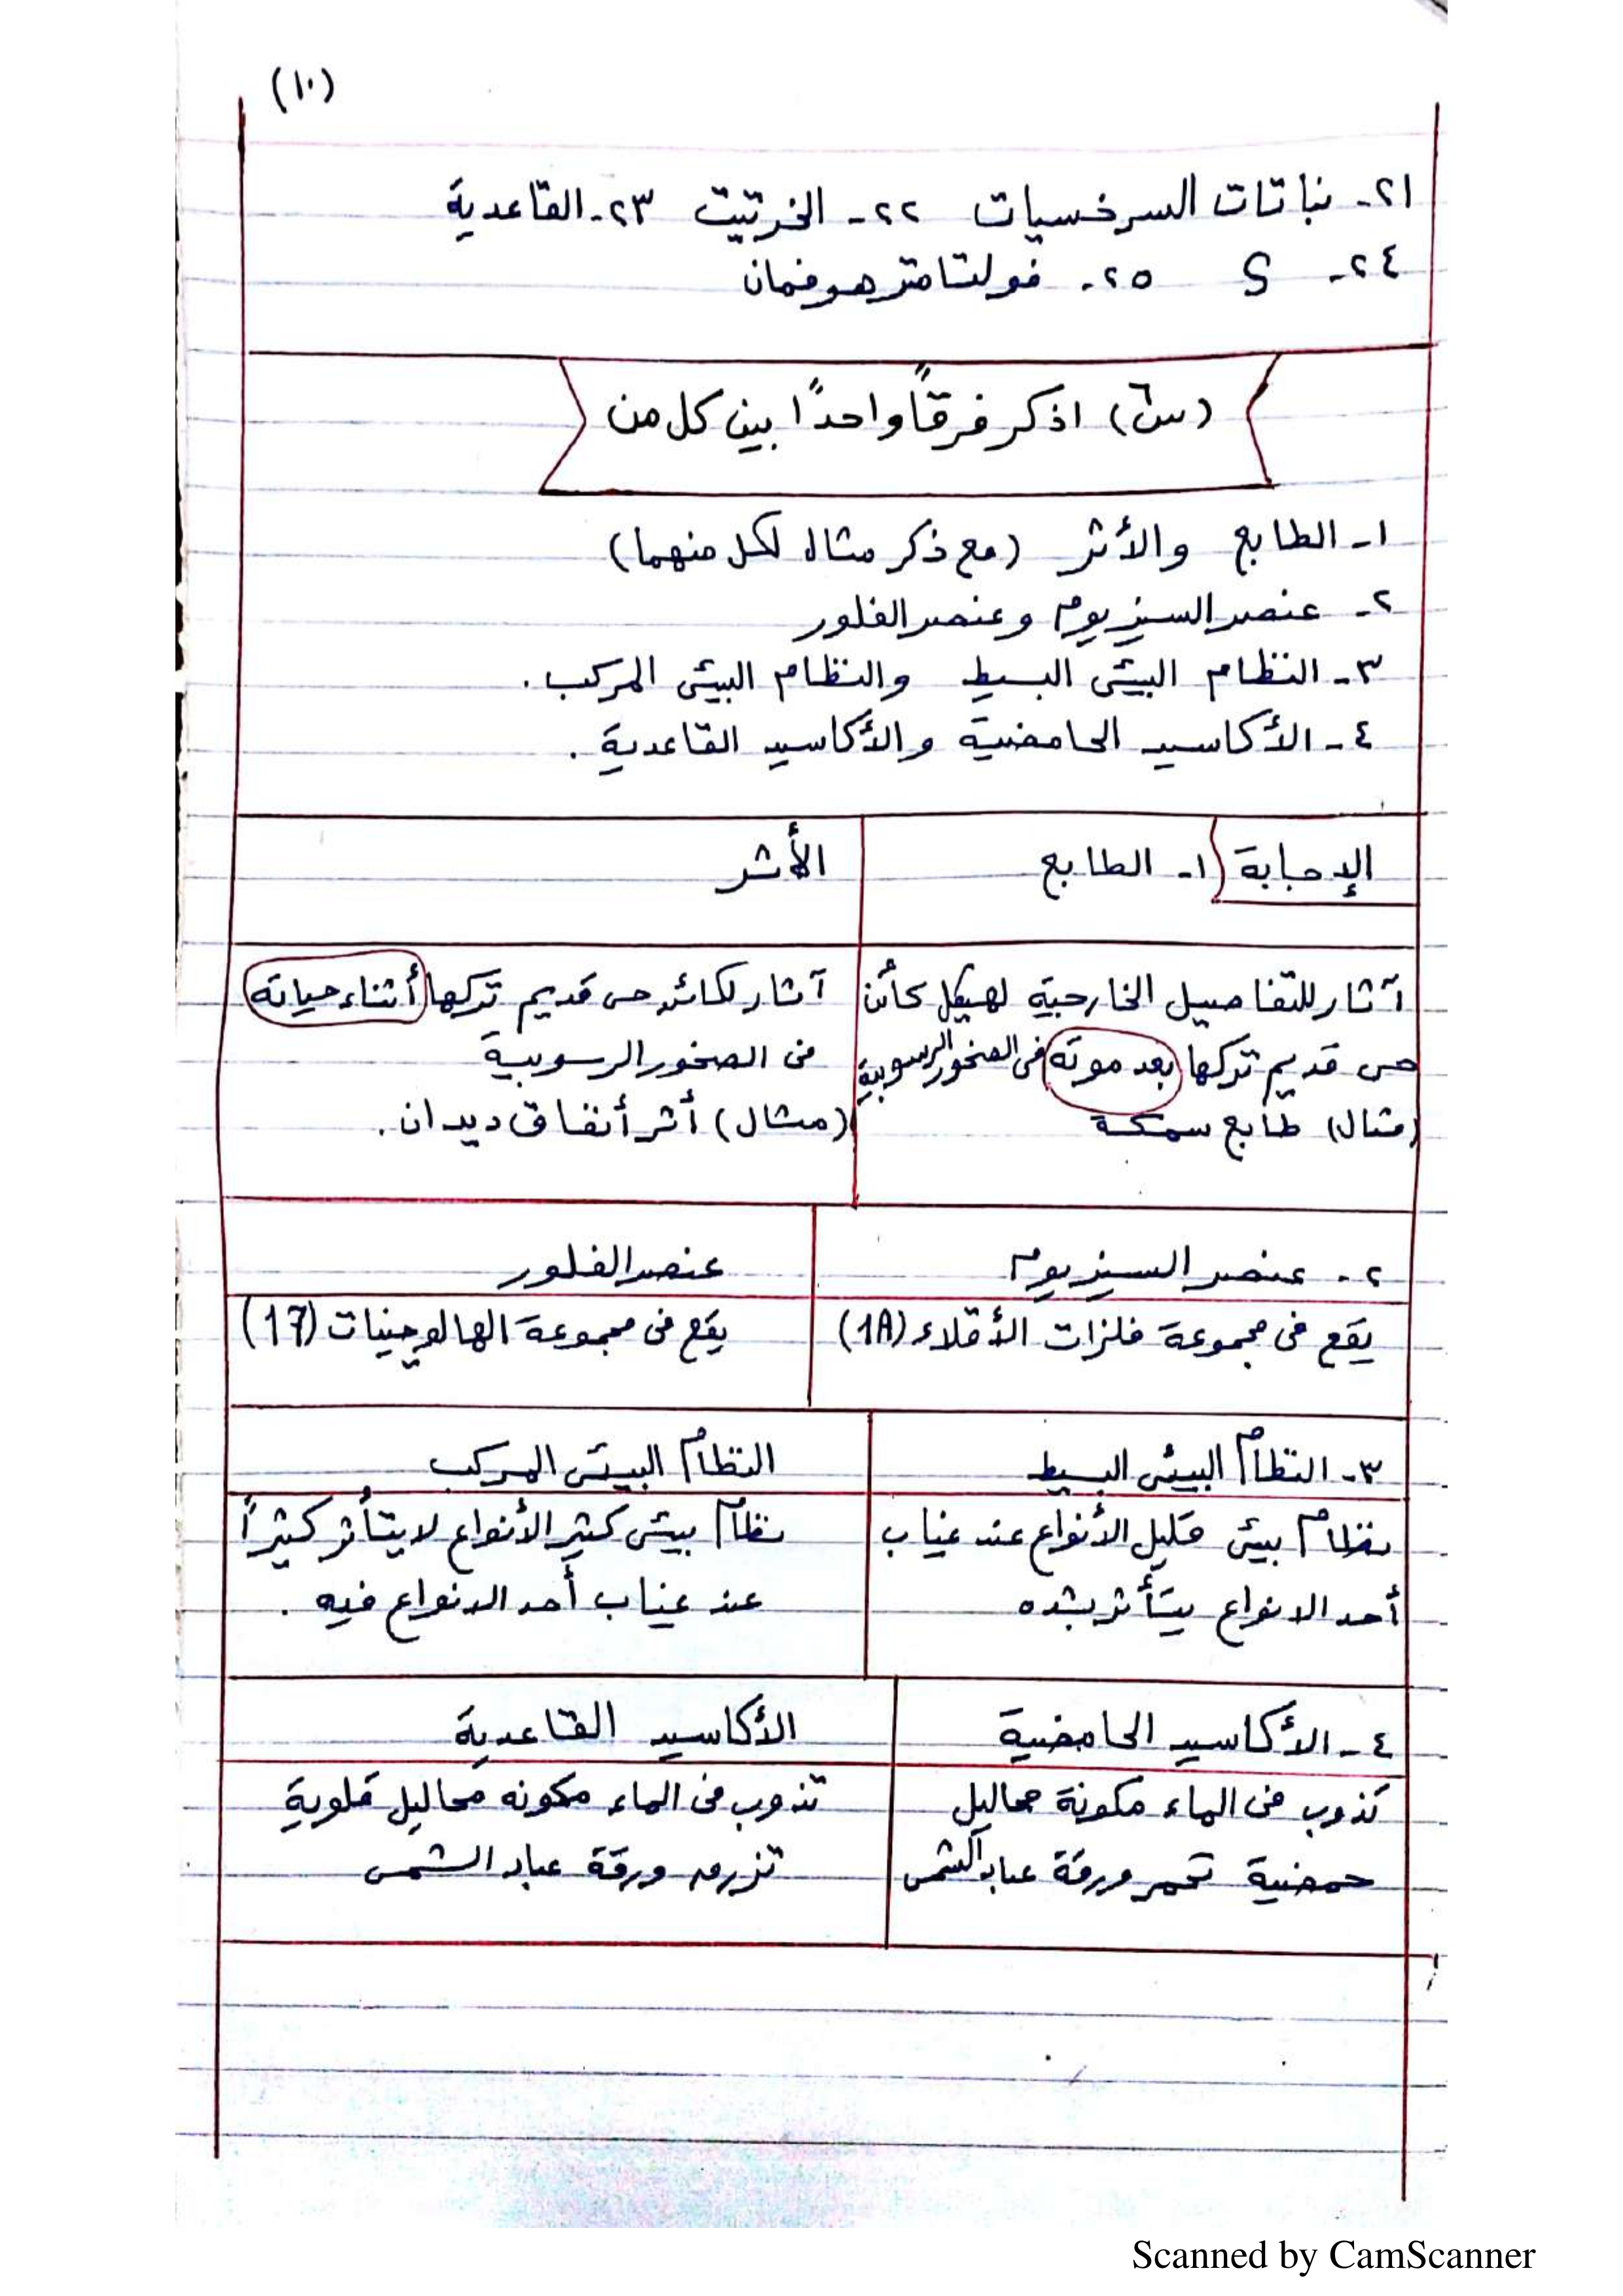 (١٠)
٢١- نباتات السرخسيات ٢٢- الخرتيت ٢٣- القاعدية
٢٤- S ٢٥- فولتامتر هوفمان
(س٦) اذكر فرقاً واحداً بين كل من
١- الطابع والأثر (مع ذكر مثال لكل منهما)
٢- عنصر السيزيوم وعنصر الفلور
٣- النظام البيئى البسيط والنظام البيئى المركب.
٤- الأكاسيد الحامضية والأكاسيد القاعدية.
الإجابة ١- الطابع
الأثر
آثار للتفاصيل الخارجية لهيكل كائن
حى قديم تركها بعد موته فى الصخور الرسوبية
(مثال) طابع سمكة
آثار لكائن حى قديم تركها أثناء حياته
فى الصخور الرسوبية
(مثال) أثر أنفاق ديدان.
٢- عنصر السيزيوم
عنصر الفلور
يقع فى مجموعة فلزات الأقلاء (1A)
يقع فى مجموعة الهالوجينات (17)
٣- النظام البيئى البسيط
النظام البيئى المركب
نظام بيئى قليل الأنواع عند غياب
أحد الانواع يتأثر بشده
نظام بيئى كثير الأنواع لا يتأثر كثيراً
عند غياب أحد الانواع فيه.
٤- الأكاسيد الحامضية
الأكاسيد القاعدية
تذوب فى الماء مكونة محاليل
حمضية تحمر ورقة عباد الشمس
تذوب فى الماء مكونه محاليل قلوية
تزرق ورقة عباد الشمس
Scanned by CamScanner